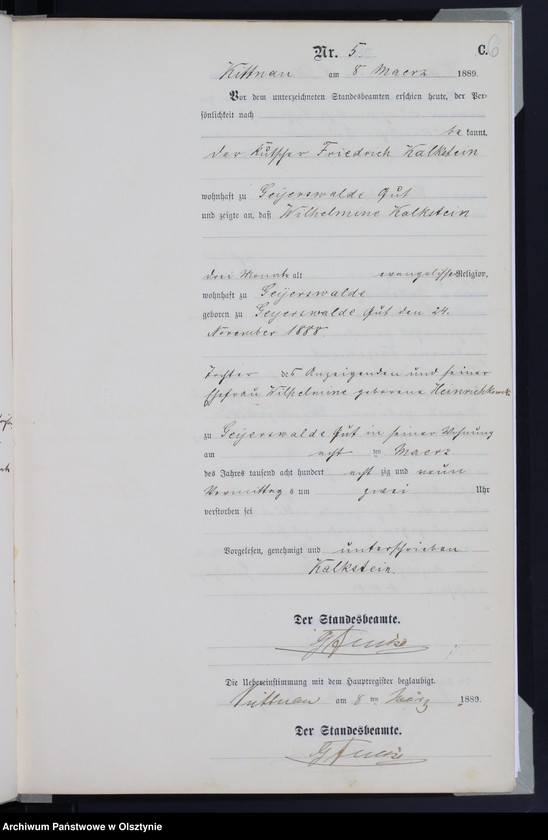 Nr. 5.
C. 6
Kittnau am 8 Maerz 1889.
Vor dem unterzeichneten Standesbeamten erschien heute, der Per-
sönlichkeit nach
be kannt,
der Kutscher Friedrich Kalkstein
wohnhaft zu Geyerswalde Gut
und zeigte an, daß Wilhelmine Kalkstein
drei Monate alt evangelischer Religion,
wohnhaft zu Geyerswalde
geboren zu Geyerswalde Gut den 24.
November 1888.
Tochter des Anzeigenden und seiner
Ehefrau Wilhelmine geborene
zu Geyerswalde Gut in seiner Wohnung
am acht ten Maerz
des Jahres tausend acht hundert acht zig und neun
Vormittag s um zwei Uhr
verstorben sei
Vorgelesen, genehmigt und unterschrieben
Kalkstein.
Der Standesbeamte.
Die Uebereinstimmung mit dem Hauptregister beglaubigt.
Kittnau am 8 ten März 1889.
Der Standesbeamte.
Archiwum Państwowe w Olsztynie